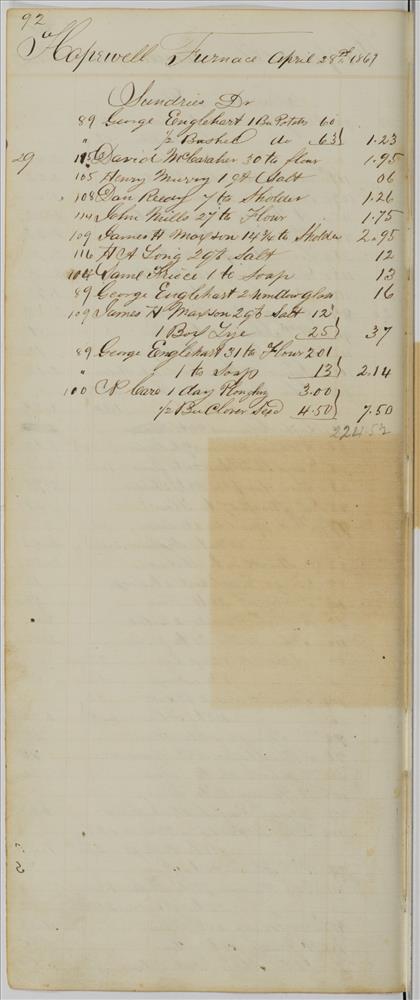 92
Hopewell Furnace April 28th 1867
Sundries Dr
89 George Englehart 1 Bu Potatoes 60
" 1/2 Bushel do 63 1.23
29 115 David McCaraher 30 lb flour 1.95
105 Henry Murry 1 qt Salt 06
108 Dan Reedy 7 lb Sholder 1.26
114 John Mills 27 lb Flour 1.75
109 James H Mayson lb Sholder 2.95
116 A A Long 2 qt Salt 12
104 1 lb Soap 13
89 George Englehart 2 window glass 16
109 James H Mayson 2 qt Salt 12
1 Box Lye 25 37
89 George Englehart 31 lb Flour 2.01
" 1 lb Soap 13 2.14
100 1 day Ploughing 3.00
1/2 Bu Clover Seed 4.50 7.50
224.52